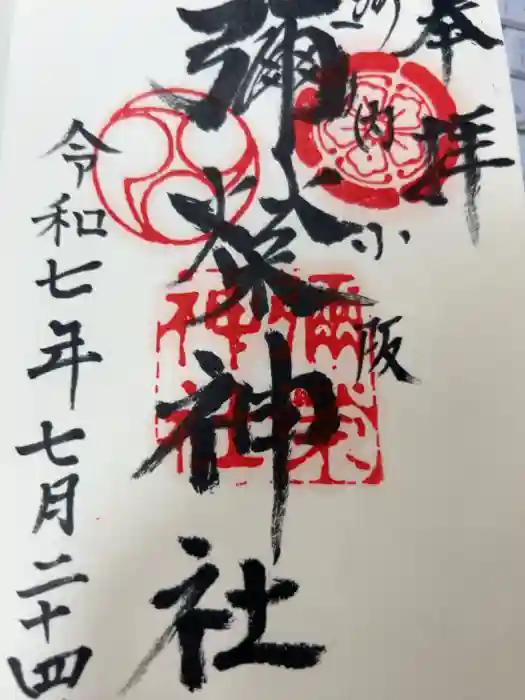 奉拝
河内小阪
彌榮神社
彌榮神社
令和七年七月二十四